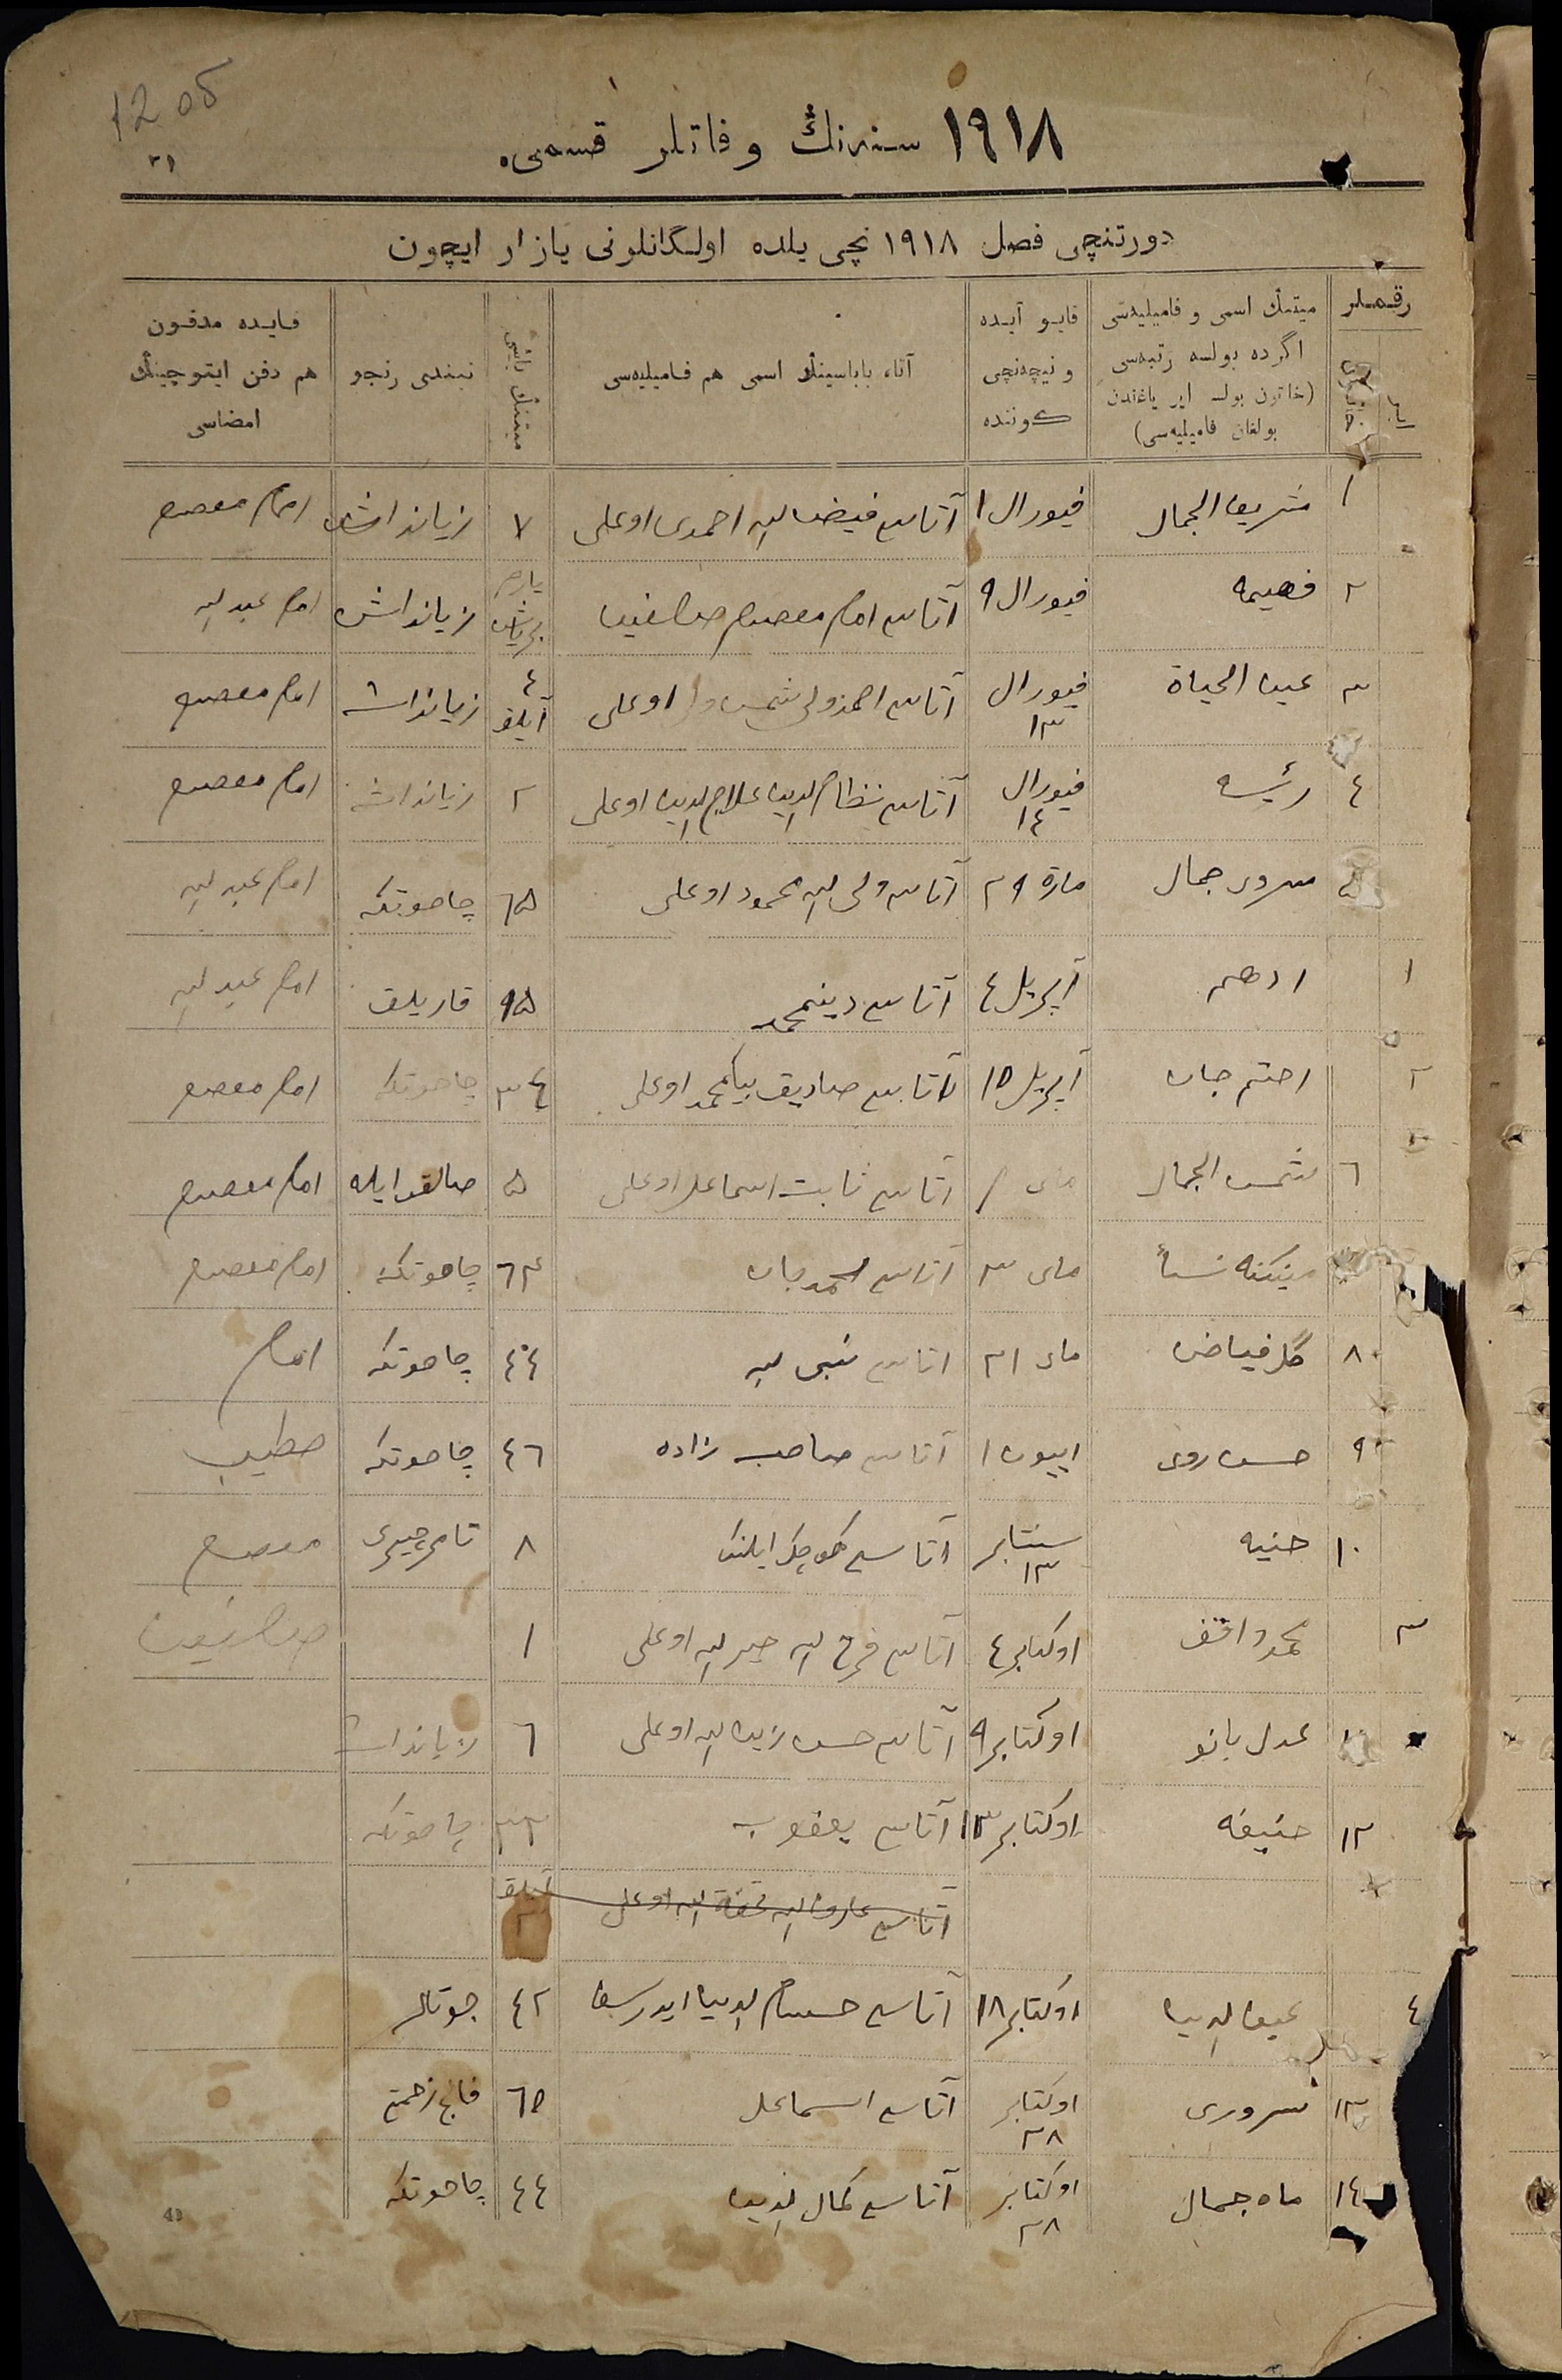 1205
٣١
١٩١٨ سنه‌نڭ وفاتلر قسمی.
دورتنچی فصل ١٩١٨ نچی یلده اولگانلرنی یازار ایچون
رقملر
میتنڭ اسمی و فامیلیه‌سی اگرده بولسه رتبه‌سی (خاتون بولسه ایر یاغندن بولغان فامیلیه‌سی)
قایو آیده و نیچه‌نچی كوننده
آتا، باباسینڭ اسمی هم فامیلیه‌سی
میتنڭ یاشی
نیندی رنجو
قایده مدفون هم دفن ایتوچینڭ امضاسی
١ شریف الجمال فیورال ١ آتاسی فیض الله احمدی اوغلی ٧ زیانداش امام معصوم
٢ فهیمه فیورال ٩ آتاسی امام معصوم یارم بر یاش زیانداش امام عبدالله
٣ عین الحیاة فیورال ١٣ آتاسی احمدولی شمس اوغلی ٤ آیلق زیانداش امام معصوم
٤ رئیسه فیورال ١٤ آتاسی نظام الدین علاج الدین اوغلی ٢ زیانداش امام معصوم
٥ سرور جمال مارت ٢٩ آتاسی ولی الله محمود اوغلی ٦٥ چاحوتكه امام عبدالله
١ ادهم آپریل ٤ آتاسی دینمحمد ٩٥ قاریلق امام عبدالله
٢ احتم جان آپریل ١٥ آتاسی صادیق بیكمحمد اوغلی ٣٤ چاحوتكه امام معصوم
٦ شمس الجمال مای ١ آتاسی ثابت اسماعیل اوغلی ٥ صالقن ایله امام معصوم
مای ٣ آتاسی احمدجان ٦٣ چاحوتكه امام معصوم
٨ گلفیاض مای ٢١ آتاسی نبی الله ٤٤ چاحوتكه امام
٩ حسن روی اییون ١ آتاسی صاحب زاده ٤٦ چاحوتكه خطیب
١٠ حنیه سنتابر ١٣ آتاسی ٨ معصوم
٣ محمد واقف اوكتابر ٤ آتاسی فرح الله خیرالله اوغلی ١
١١ عدل بانو اوكتابر ٩ آتاسی حسن زین الله اوغلی ٦ زیانداش
١٢ حنیفه اوكتابر ١٣ آتاسی یعقوب ٣٣ چاحوتكه
آتاسی عارف الله نعمة الله اوغلی آیلق ٣
٤ عین الدین اوكتابر ١٨ آتاسی حسام الدین ایدرسف ٤٢ جوتال
١٣ سروری اوكتابر ٢٨ آتاسی اسماعیل ٦٥ فالج زحمتی
١٤ ماه جمال اوكتابر ٢٨ آتاسی كمال الدین ٤٤ چاحوتكه